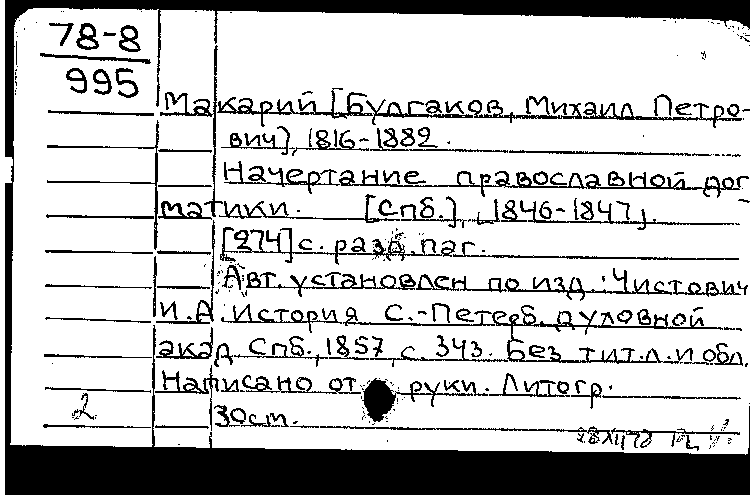 78-8
995
Макарий [Булгаков, Михаил Петро-
вич], 1816-1882.
Начертание православной дог-
матики. [Спб.], [1846-1847].
[274] с. разд. паг.
Авт. установлен по изд.: Чистович
И.А. История С.-Петерб. духовной
акад. Спб., 1857, с. 343. Без тит.л. и обл.
Написано от руки. Литогр.
30см.
2